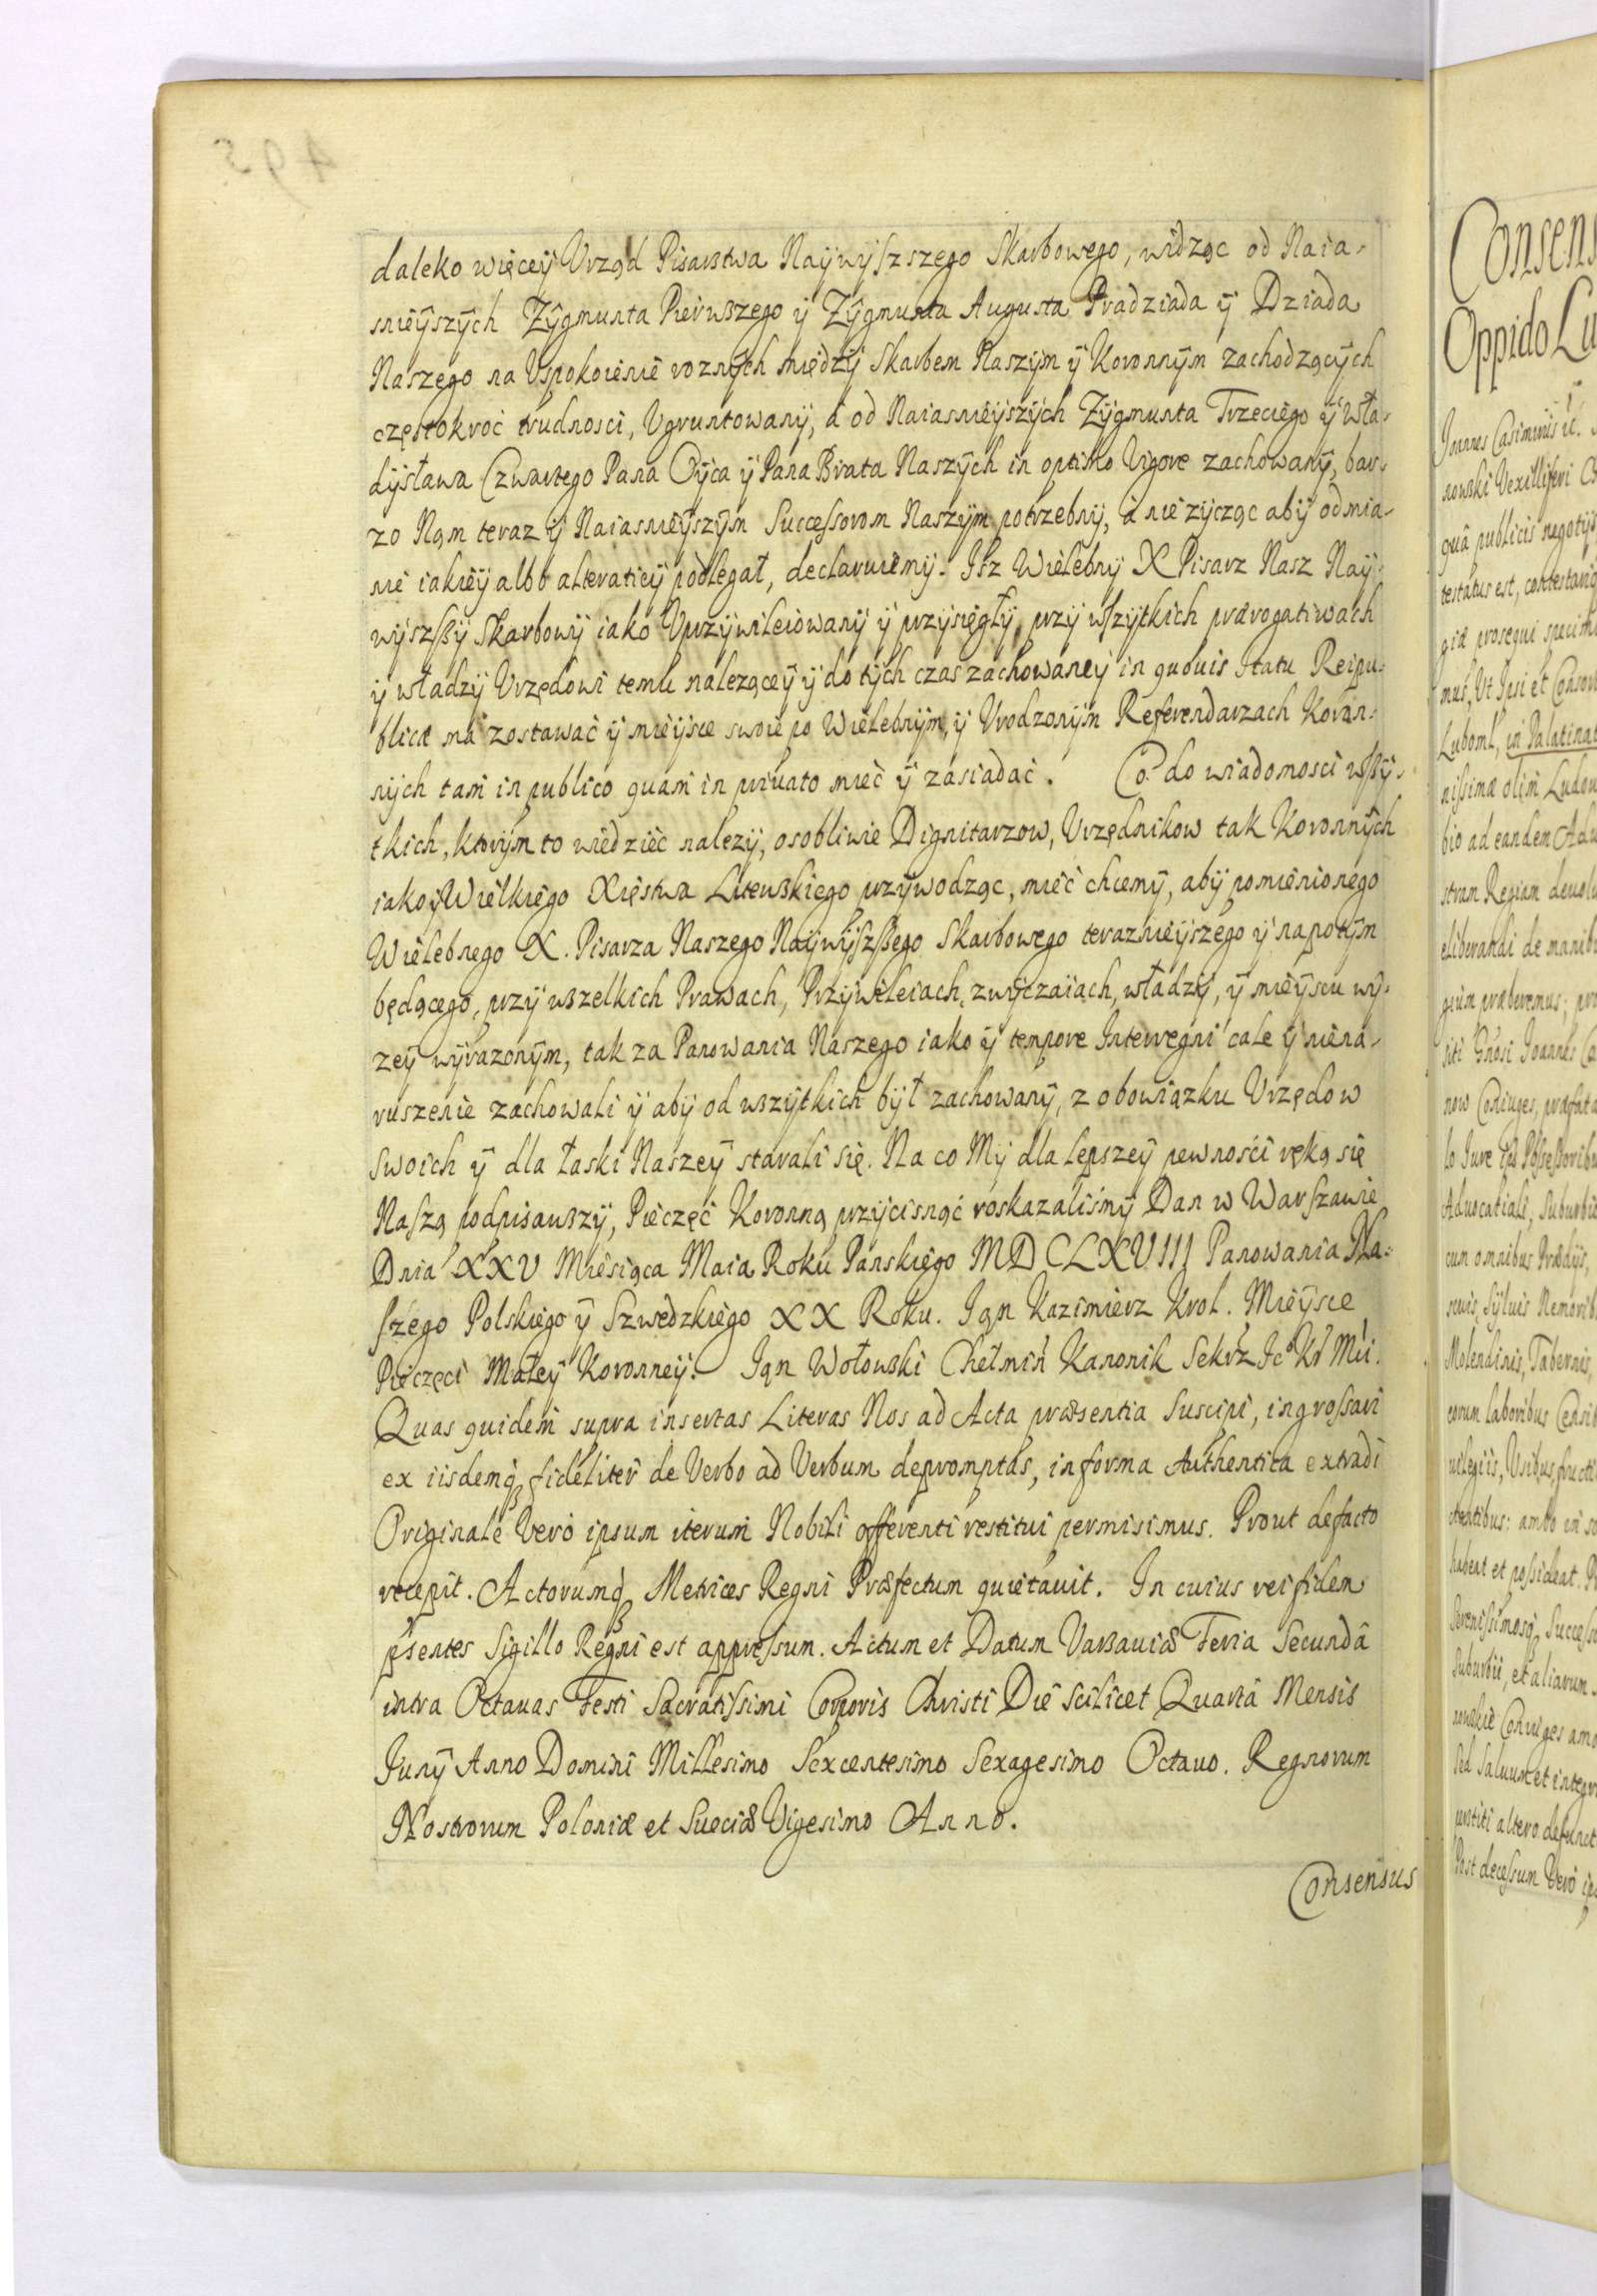 daleko więcey Vrząd Pisarstwa Naywyſzszego Skarbowego, widząc od Naia-
snieyszych Zygmunta Pierwszego y Zygmunta Augusta Pradziada y Dziada
Naszego na Vspokoienie roznych między Skarbem Naszym y Koronnym zachodzących
częstokroć trudnosci, Vgruntowany, a od Naiasnieyszych Zygmunta Trzeciego y Wła-
dysława Czwartego Pana Oyca y Pana Brata Naszych in optimo Vigore zachowany, bar-
zo Nąm teraz y Naiasnieyszym Succeſsorom Naszym potrzebny, a nie zycząc aby odmia-
nie iakiey albo alteraticy podlegał, declaruiemy. Iſz Wielebny X Pisarz Nasz Nay-
wyszſzy Skarbowy iako Vprzywileiowany y przysięgły, przy wſzytkich prærogatiwach
y władzy Vrzędowi temu nalezącey y do tych czas zachowaney in quouis statu Reipu-
blicæ ma zostawać y mieysce swoie po Wielebnym, y Vrodzonym Referendarzach Koron-
nych tam in publico quam in priuato mieć y zasiadać. Co do wiadomosci wſzy-
tkich, ktorym to wiedzieć nalezy, osobliwie Dignitarzow, Vrzędnikow tak Koronnych
iako y Wielkiego Xięstwa Litewskiego przywodząc, mieć chcemy, aby pomienionego
Wielebnego X. Pisarza Naszego Naywyſzſzego Skarbowego teraznieyszego y napotym
będącego, przy wszelkich Prawach, Przywileiach, zwyczaiach, władzy, y mieyscu wy-
zey wyrazonym, tak za Panowania Naszego iako y tempore Interregni cale y niena-
ruszenie zachowali y aby od wszytkich był zachowany, z obowiązku Vrzędow
swoich y dla łaski Naszey starali się. Na co My dla lepszey pewności ręką się
Naſzą podpisawszy, Pieczęć Koronną przycisnąć roskazalismy Dan w Warſzawie
Dnia XXV Miesiąca Maia Roku Panskiego MDCLXVIII Panowania Na-
ſzego Polskiego y Szwedzkiego XX Roku. Ian Kazimierz Krol. Mieysce
Pieczęci Małey Koronney. Ian Wołowski Chełmiń Kanonik Sekrz Ic° Kr Mći.
Quas quidem supra insertas Literas Nos ad Acta præsentia Suscipi, ingroſsari
ex iisdemq fideliter de Verbo ad Verbum depromptas, in forma Authentica extradi
Originale Verò ipsum iterum Nobili offerenti restitui permisimus. Prout de facto
recepit. Actorumq Metrices Regni Præfectum quietauit. In cuius rei fidem
pſentes Sigillo Regni est appreſsum. Actum et Datum Varsauiæ Feria Secundâ
intra Octauas Festi Sacratiſsimi Corporis Christi Die scilicet Quartâ Mensis
Iuny Anno Domini Millesimo Sexcentesimo Sexagesimo Octauo. Regnorum
Nostrorum Poloniæ et Sueciæ Vigesimo Anno.
Consensus
495
Consens
Oppido Lu
Ioannes Casimirus ic.
nowski Vexilliferi
quâ publicis negotijs
testatus est, contestari
giæ prosequi specim
mus, Vt Ipsi et Consor
Luboml, in Palatinat
niſsimæ olim Ludou
bio ad eandem Adu
stram Regiam deuolu
eliberandi de manib
gium præberemus; pro
siti Gnosi Ioannes Ca
now Coniuges, præfata
lo Iure
Aduocatiali, Suburbio
cum omnibus Prædijs,
scuis, Syluis Nemorib
Molendinis, Tabernis,
eorum laboribus Censib
uilegiis, Vsibus, fructi
ctantibus: ambo in so
habeat et poſsideat.
Sereniſsimosq Succeſso
Suburbii, et aliarum
nowskie Coniuges amo
Sed Saluum et integr
perstiti altero defunct
Post deceſsum Verò ips